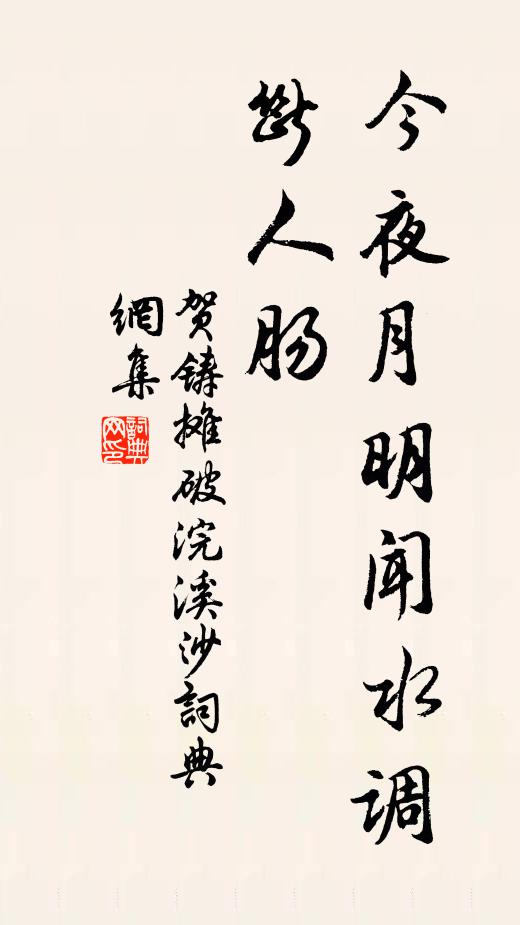 今夜月明闻水调
断人肠
贺铸摊破浣溪沙詞典
網集
詞典網印